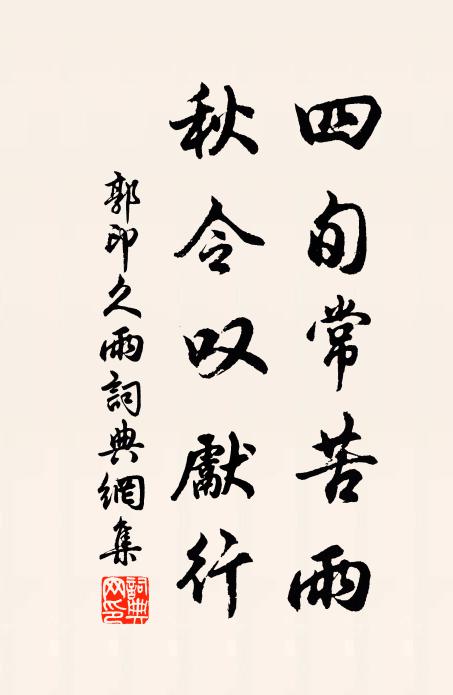 四旬常苦雨
秋令叹獻行
郭印久雨詞典網集